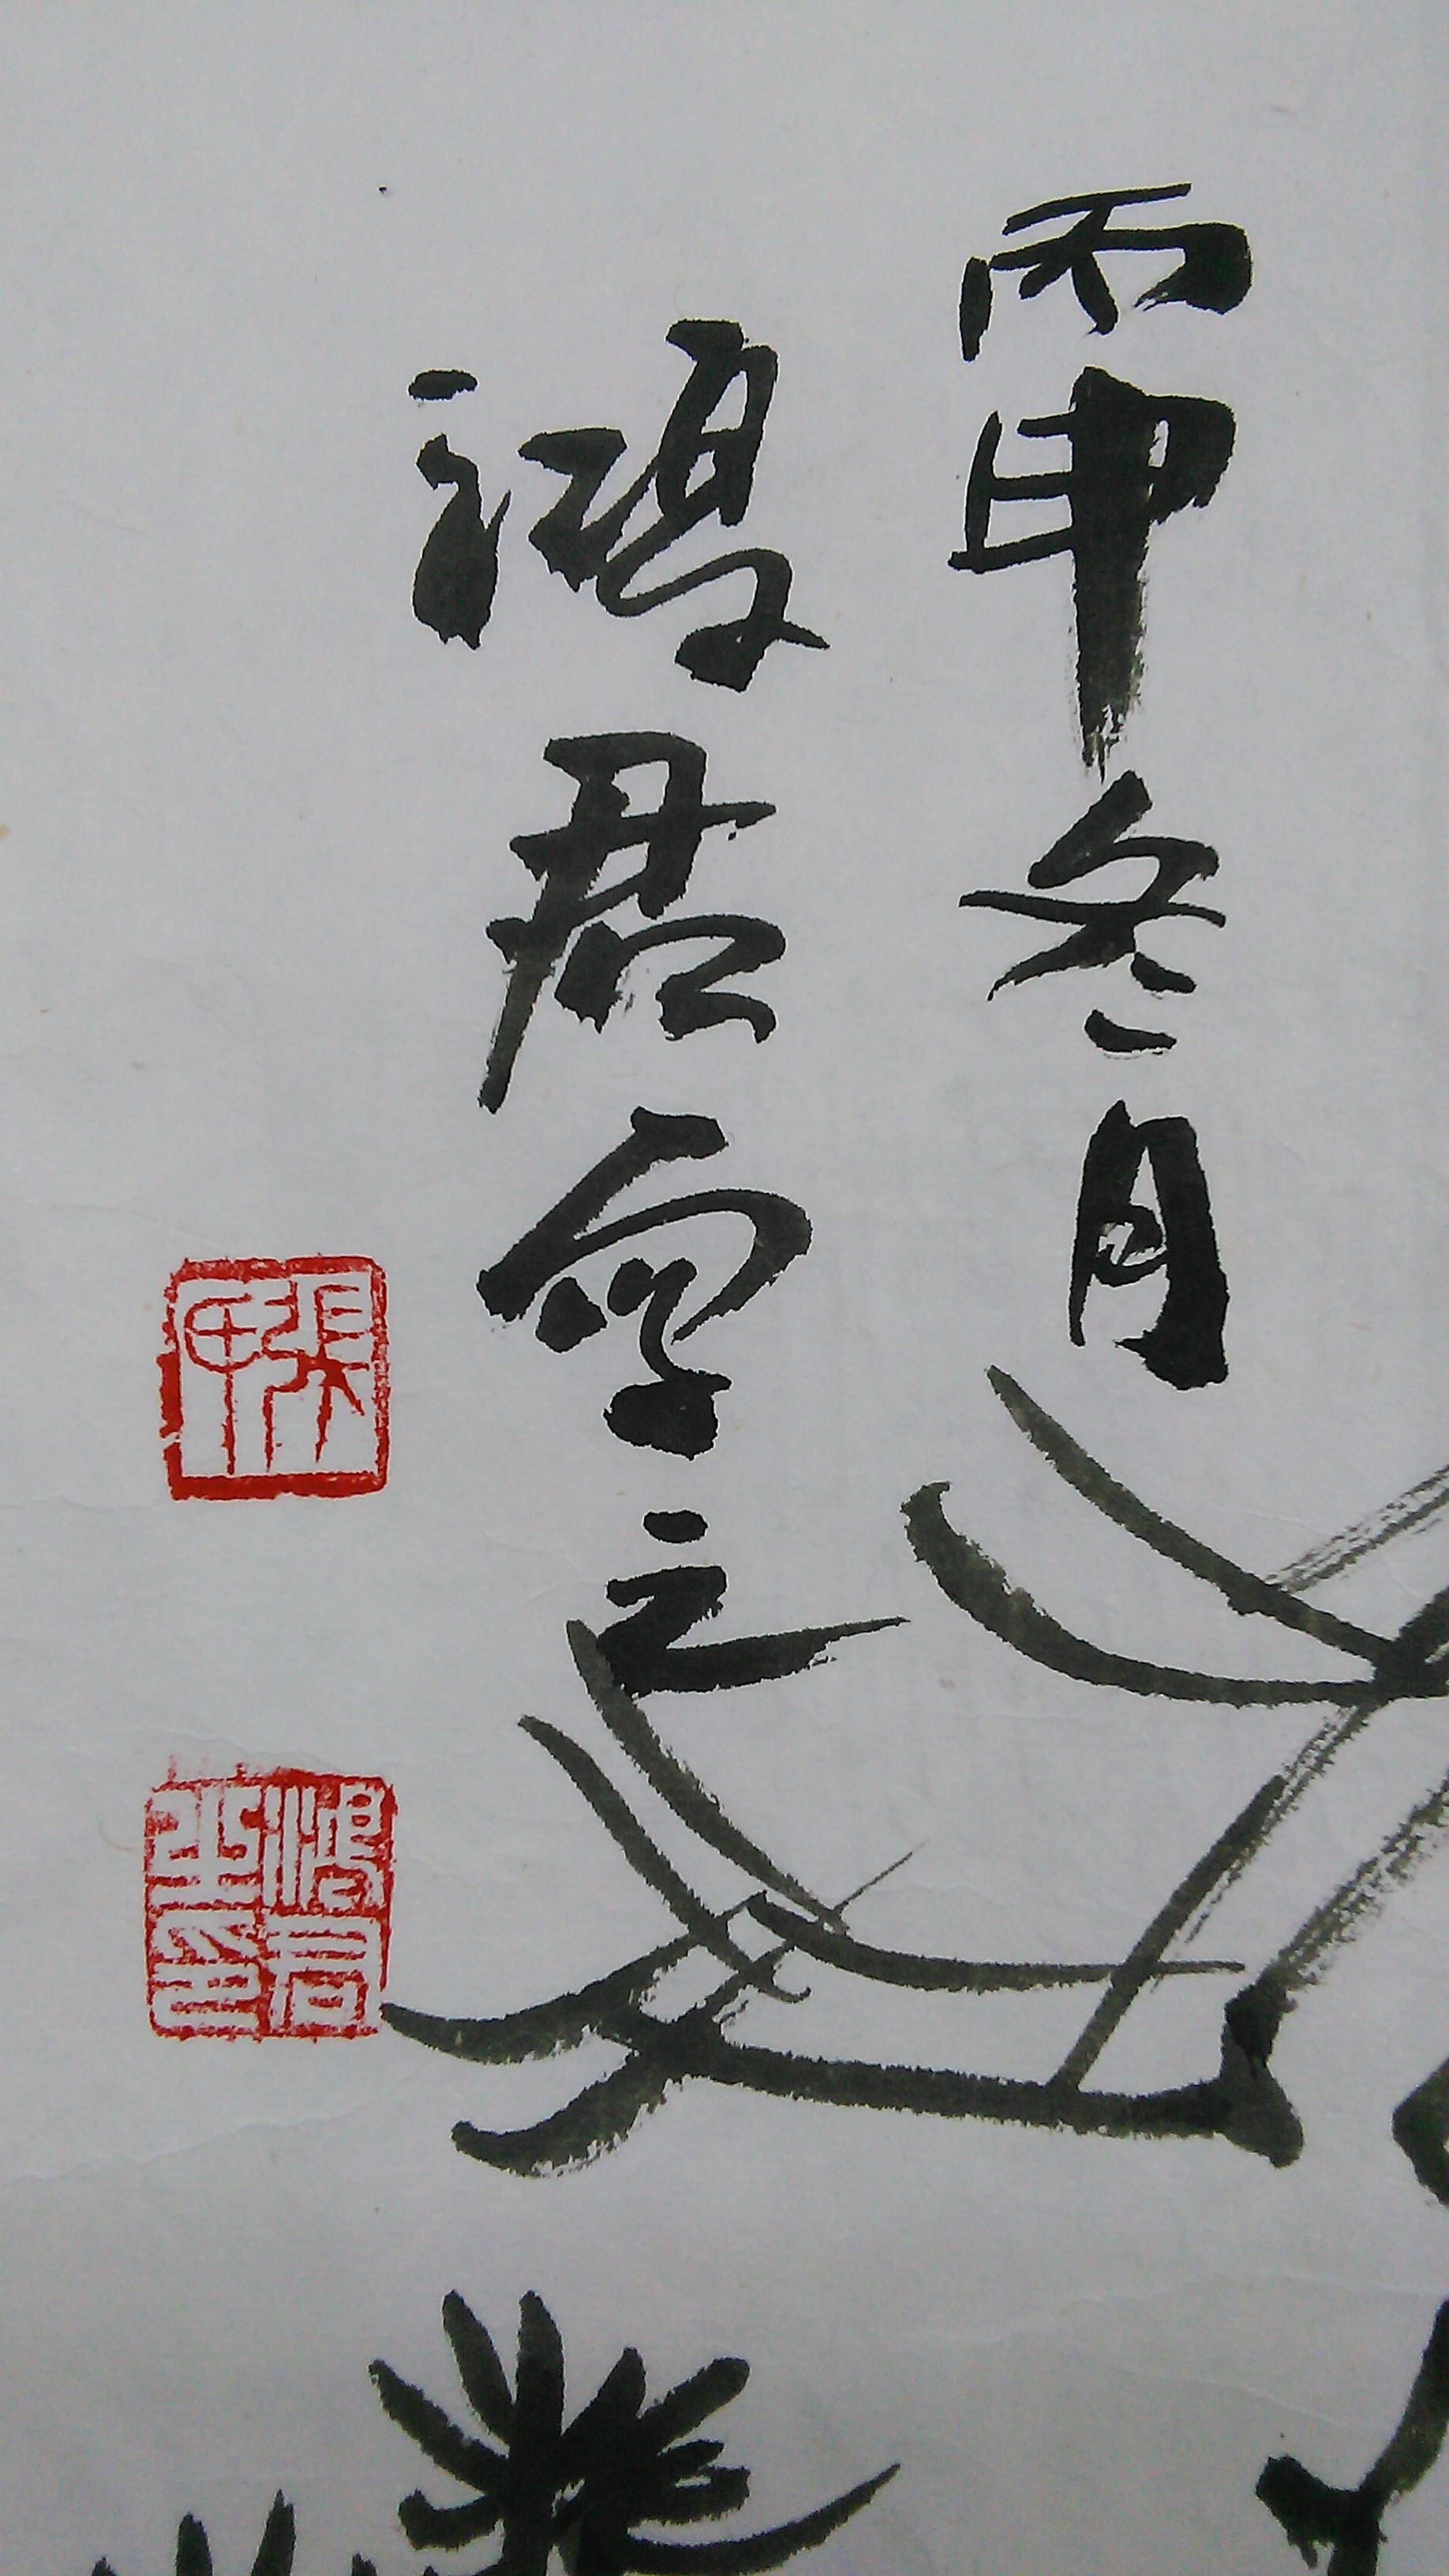 丙申冬月
鸿君写之
張
鴻君之印